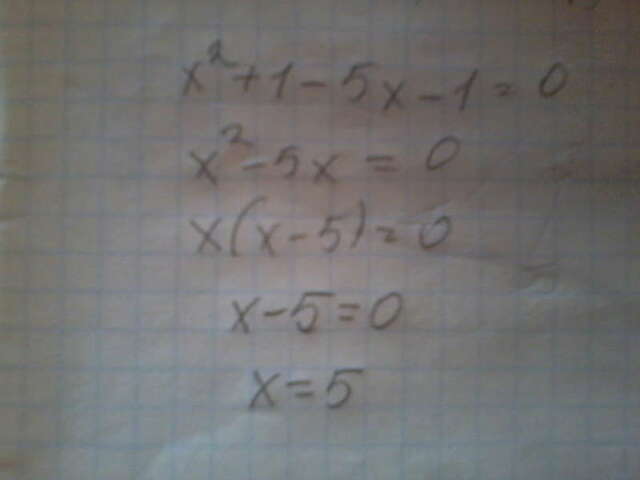 x²+1-5x-1=0
x²-5x=0
x(x-5)=0
x-5=0
x=5